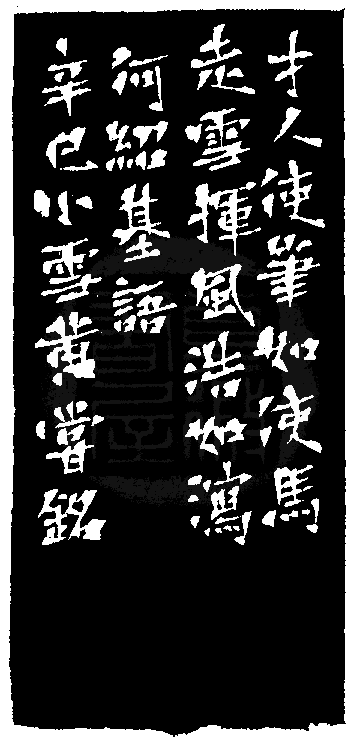 才人使筆如使馬
走雪揮風浩如瀉
何紹基語
辛巳小雪黄嘗銘